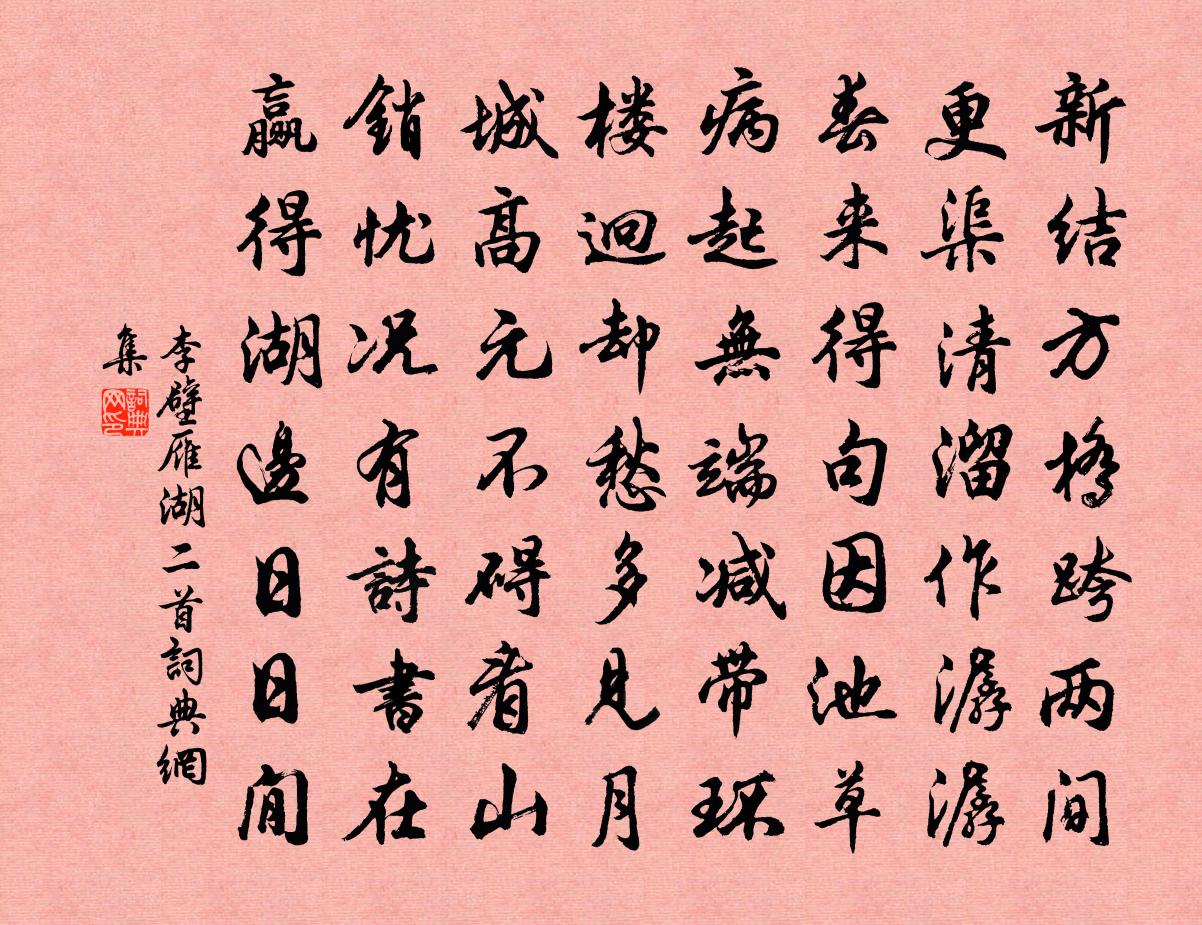 新结方橋跨两间
更渠清溜作潺潺
春来得句因池草
病起無端减带环
楼迥却愁多见月
城高元不碍看山
銷忧况有詩書在
赢得湖邊日日閒
李壁雁湖二首詞典網
集
詞典網印